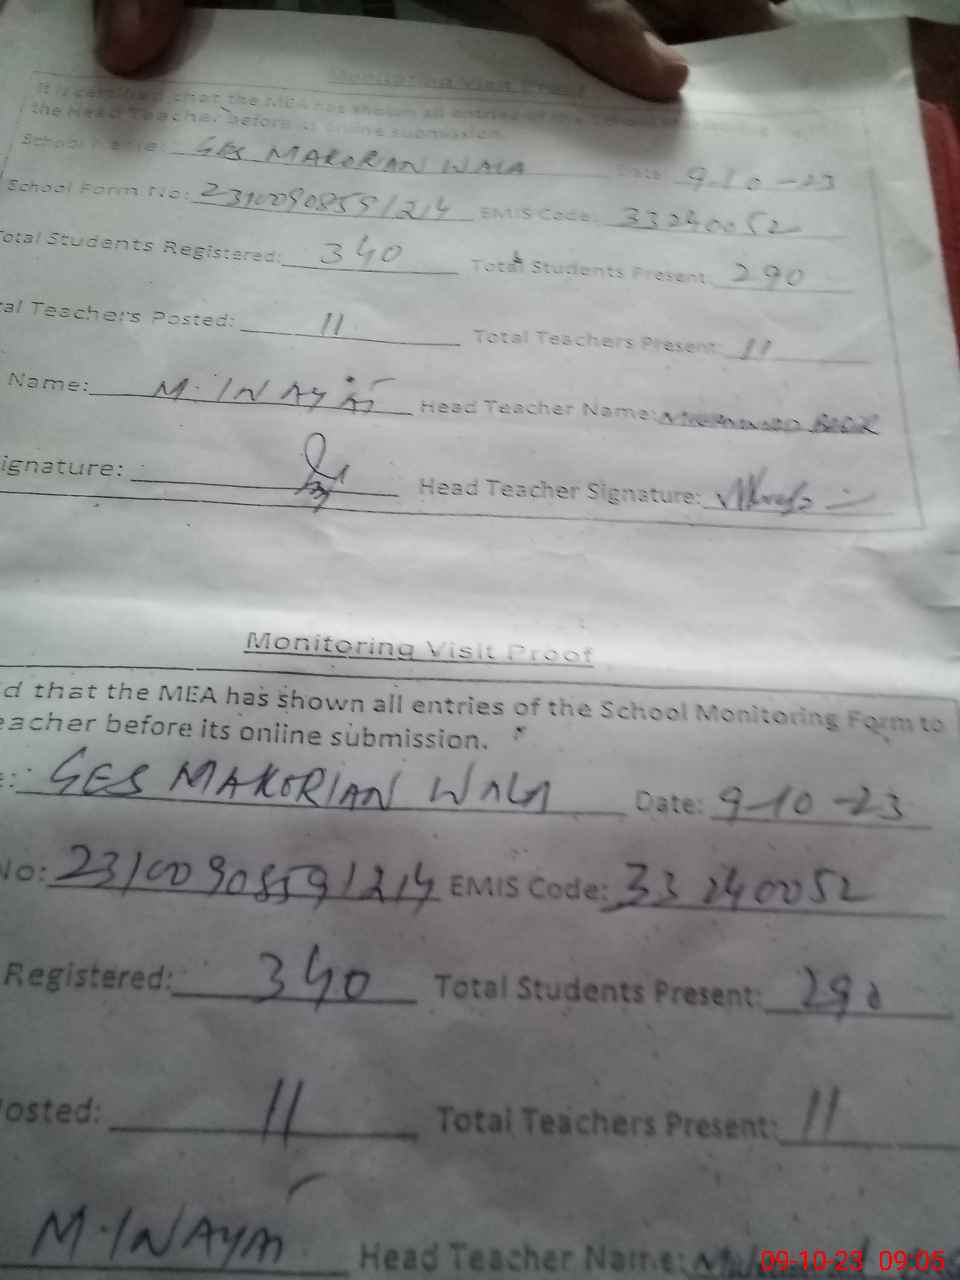 Monitoring Visit Proof
It is certified that the MEA has shown all entries of the School Monitoring
the Head Teacher before its online submission.
School Name: GES MAKORIAN WALA Date: 9-10-23
School Form No: 231009085591214 EMIS Code: 33240052
Total Students Registered: 340 Total Students Present: 290
tal Teachers Posted: 11 Total Teachers Present: 11
Name: M. INAYAT Head Teacher Name:
ignature: Head Teacher Signature:
Monitoring Visit Proof
d that the MEA has shown all entries of the School Monitoring Form to
eacher before its online submission.
e: GES MAKORIAN WALA Date: 9-10-23
No: 231009085591214 EMIS Code: 33240052
Registered: 340 Total Students Present: 290
Posted: 11 Total Teachers Present: 11
M. INAYAT Head Teacher Name:
09-10-23 09:05